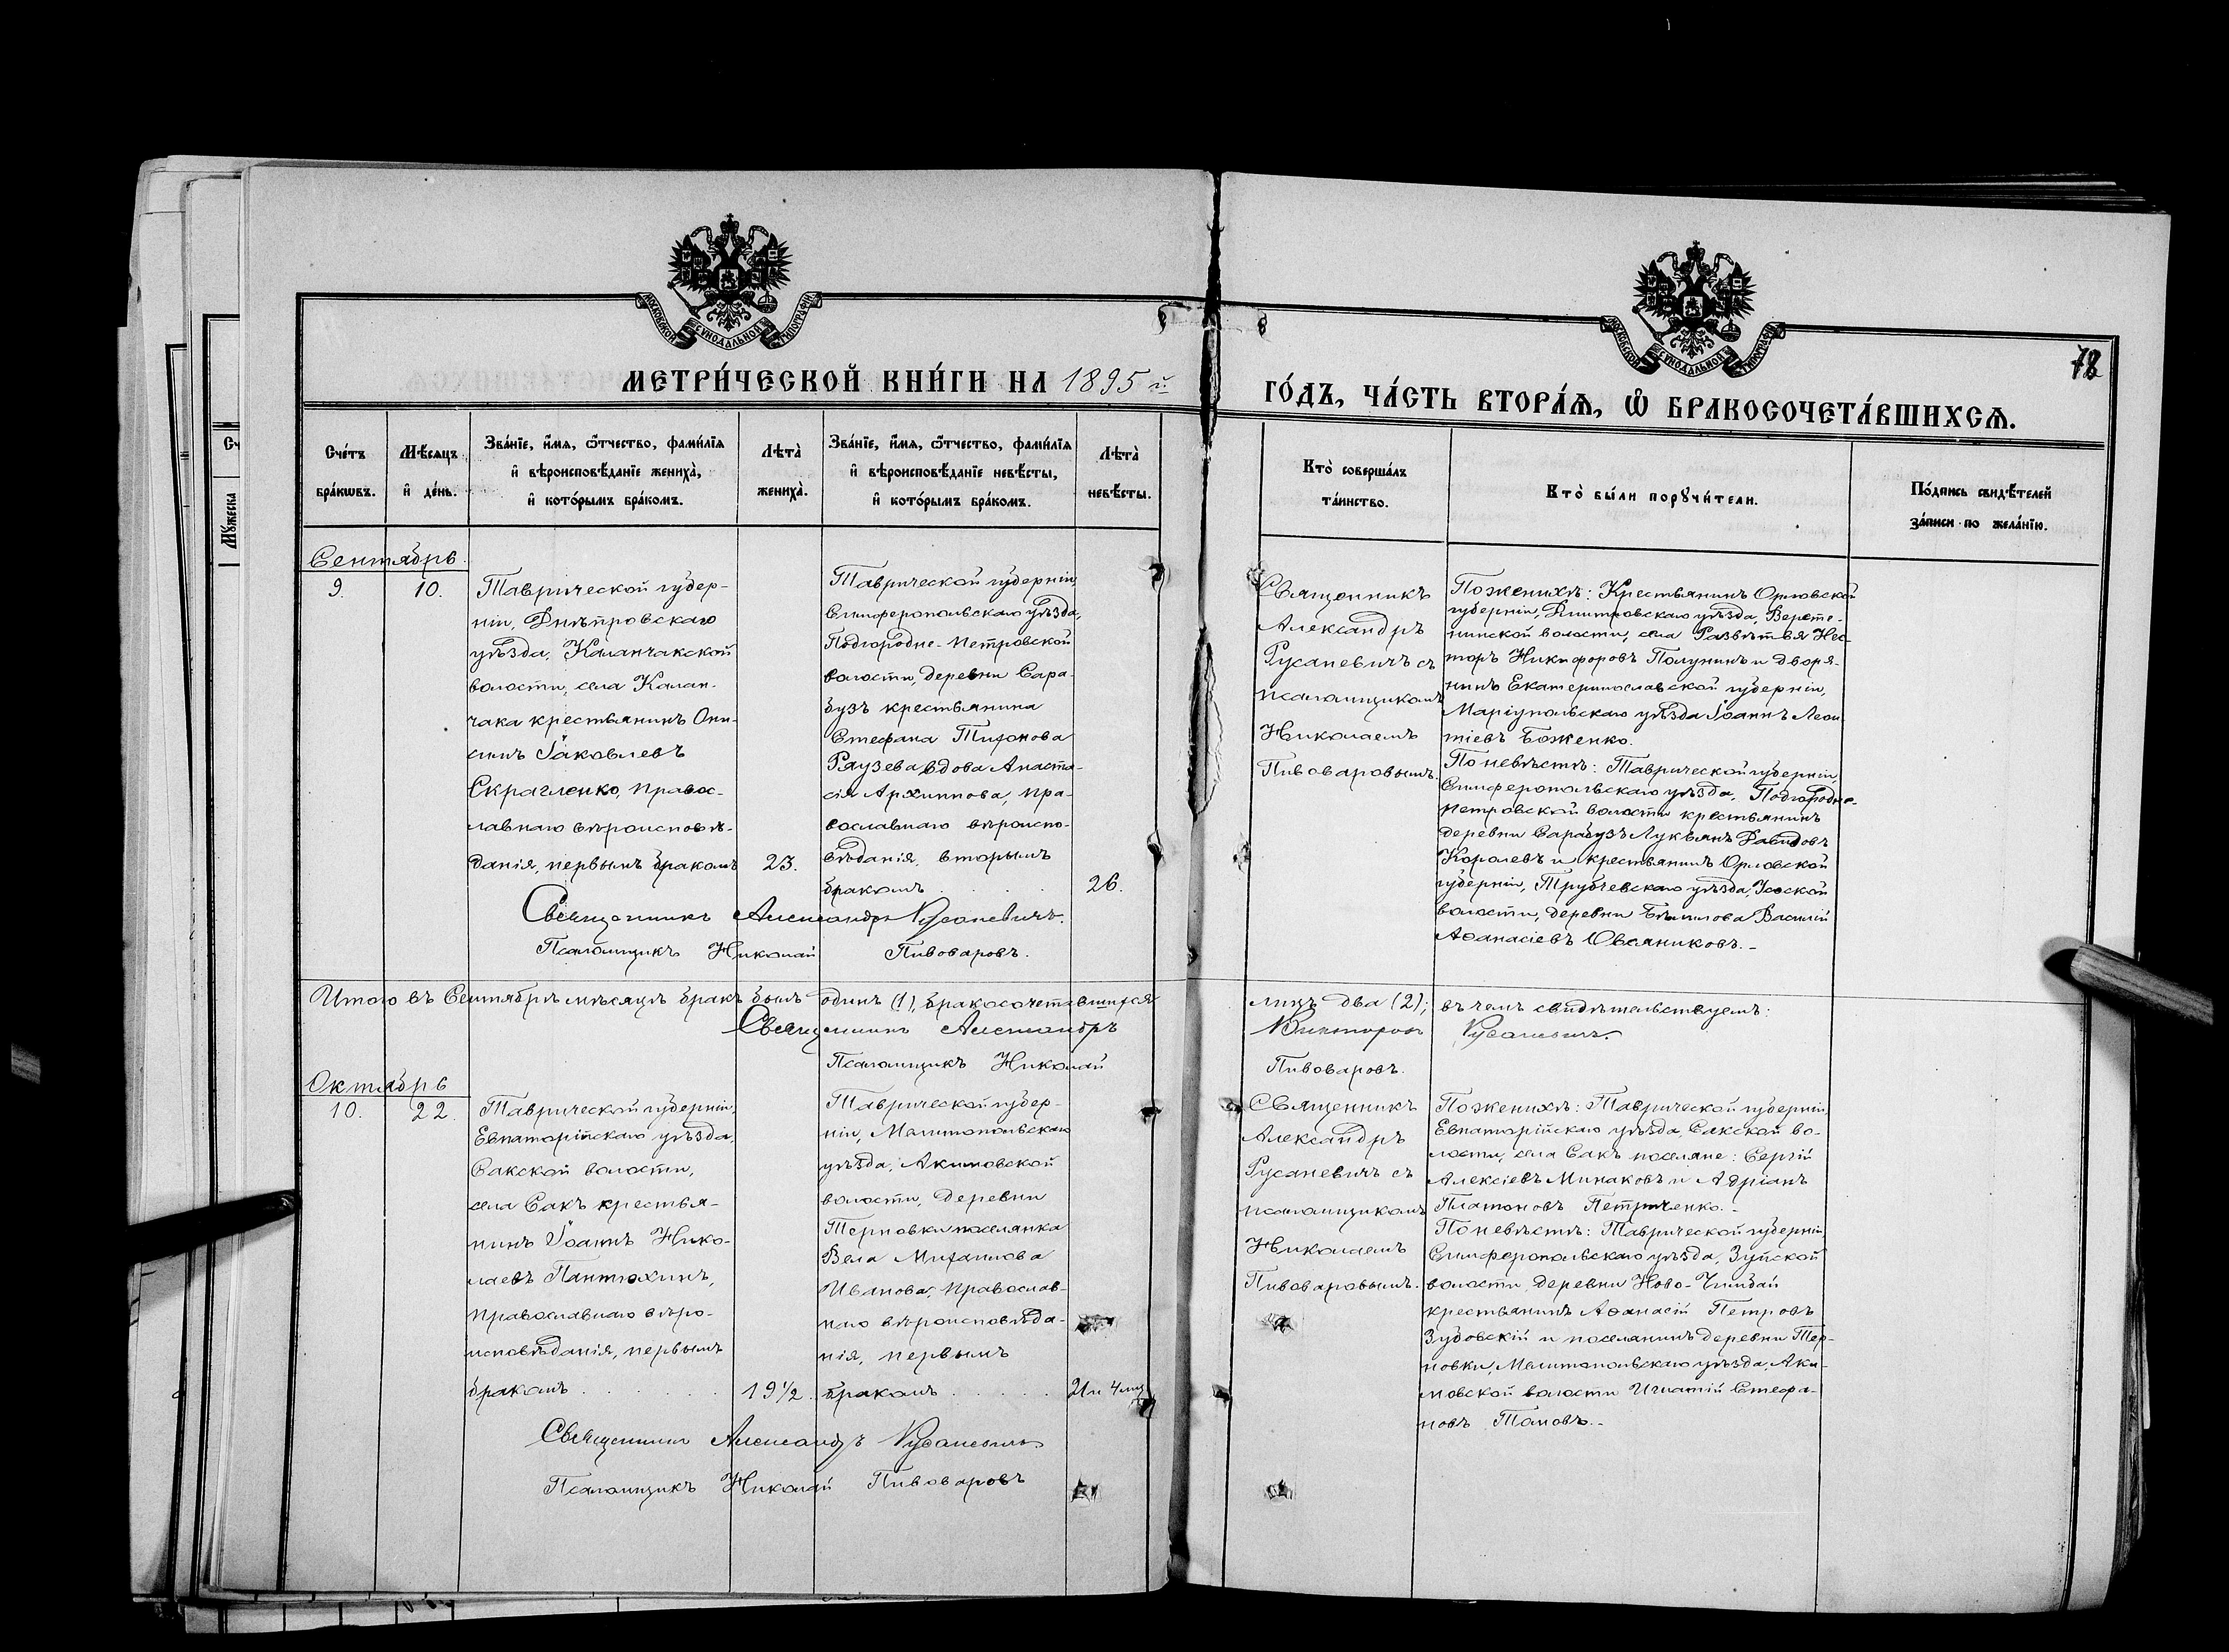 МЕТРИ́ЧЕСКОЙ КНИ́ГИ НА 1895 й.
ГО́ДЪ, ЧА́СТЬ ВТОРА́Ѧ, Ѽ БРАКОСОЧЕТА́ВШИХСѦ.
Сче́тъ бра́кѡвъ.
Мѣ́сяцъ и҆ де́нь.
Зва́нїе, и҆́мѧ, ѻ҆́тчество, фами́лїѧ
и҆ вѣроисповѣ́данїе жениха̀,
и҆ кото́рымъ бра́комъ.
Лѣта̀ жениха̀.
Зва́нїе, и҆́мѧ, ѻ҆́тчество, фами́лїѧ
и҆ вѣроисповѣ́данїе невѣ́сты,
и҆ кото́рымъ бра́комъ.
Лѣта̀ невѣ́сты.
Кто̀ соверша́лъ
та́инство.
Кто̀ бы́ли порꙋчи́тели.
По́дпись свидѣ́телей
за́писи по жела́нїю.
Сентябрь.
9.
10.
Таврической губер-
ніи, Днѣпровскаго
уѣзда, Каланчакской
волости, села Калан-
чака крестьянинъ Они-
симъ Іаковлевъ
Скрагленко, правос-
лавнаго вѣроисповѣ-
данія, первымъ бракомъ
23.
Таврической губерніи,
Симферопольскаго уѣзда,
Подгородне-Петровской
волости, деревни Сара-
бузъ крестьянина
Стефана Тихонова
Раузева вдова Анаста-
сія Архиппова, пра-
вославнаго вѣроиспо-
вѣданія, вторымъ
бракомъ
26.
Священникъ Александръ Русаневичъ.
Псаломщикъ Николай Пивоваровъ.
Священникъ
Александръ
Русаневичъ съ
псаломщикомъ
Николаемъ
Пивоваровымъ.
По женихѣ: Крестьянинъ Орловской
губерніи, Дмитровскаго уѣзда, Верете-
нинской волости, села Развѣтвя Нес-
торъ Никифоровъ Полунинъ и дворя-
нинъ Екатеринославской губерніи,
Маріупольскаго уѣзда Іоаннъ Леон-
тіевъ Боженко.
По невѣстѣ: Таврической губерніи,
Симферопольскаго уѣзда, Подгородне-
Петровской волости крестьянинъ
деревни Сарабузъ Лукьянъ Давидовъ
Королевъ и крестьянинъ Орловской
губерніи, Трубчевскаго уѣзда, Усской
волости, деревни Василій
Аѳанасіевъ Овсяниковъ.-
Итого въ Сентябрѣ мѣсяцѣ бракъ былъ одинъ (1), бракосочетавшихся лицъ два (2); въ чемъ свидѣтельствуемъ:
Священникъ Александръ Викторовъ Русаневичъ.
Псаломщикъ Николай Пивоваровъ.
Октябрь
10.
22.
Таврической губерніи,
Евпаторійскаго уѣзда,
Сакской волости,
села Сакъ крестья-
нинъ Іоаннъ Нико-
лаевъ Пантюхинъ,
православнаго вѣро-
исповѣданія, первымъ
бракомъ
19½.
Таврической губер-
ніи, Мелитопольскаго
уѣзда, Акимовской
волости, деревни
Терновки поселянка
Вела Михаилова
Иванова, православ-
наго вѣроисповѣда-
нія, первымъ
бракомъ
21 и 4 мц
Священникъ Александръ Русаневичъ
Псаломщикъ Николай Пивоваровъ
Священникъ
Александръ
Русаневичъ съ
псаломщикомъ
Николаемъ
Пивоваровымъ.
По женихѣ: Таврической губерніи,
Евпаторійскаго уѣзда, Сакской во-
лости, села Сакъ поселяне: Сергій
Алексіевъ Минаковъ и Адріанъ
Платоновъ Петриченко.-
По невѣстѣ: Таврической губерніи,
Симферопольскаго уѣзда, Зуйской
волости, деревни Ново-Чимбай
крестьянинъ Аѳанасій Петровъ
Зубовскій и поселянинъ деревни Тер-
новки, Мелитопольскаго уѣзда, Аки-
мовской волости Игнатій Стефа-
новъ Тановъ.-